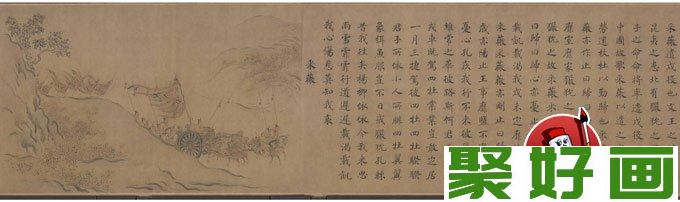 采薇遣戍役也文王之
昆夷之患北有玁狁之
子之命命將率遣戍役
中國故歌采薇以遣之
勞還杕杜以勤歸也
薇亦作止曰歸曰歸
靡室靡家玁狁之
玁狁之故采薇采
曰歸曰歸心亦憂止
載飢載渴我戍未定
采薇采薇薇亦剛止曰歸
歲亦陽止王事靡盬不遑
憂心孔疚我行不來
維常之華彼路斯何君
戎車既駕四牡業業豈敢定居
一月三捷駕彼四牡四牡騤騤
君子所依小人所腓四牡翼翼
象弭魚服豈不日戒玁狁孔棘
昔我往矣楊柳依依今我來思
雨雪霏霏行道遲遲載渴載飢
我心傷悲莫知我哀
采薇
聚好画